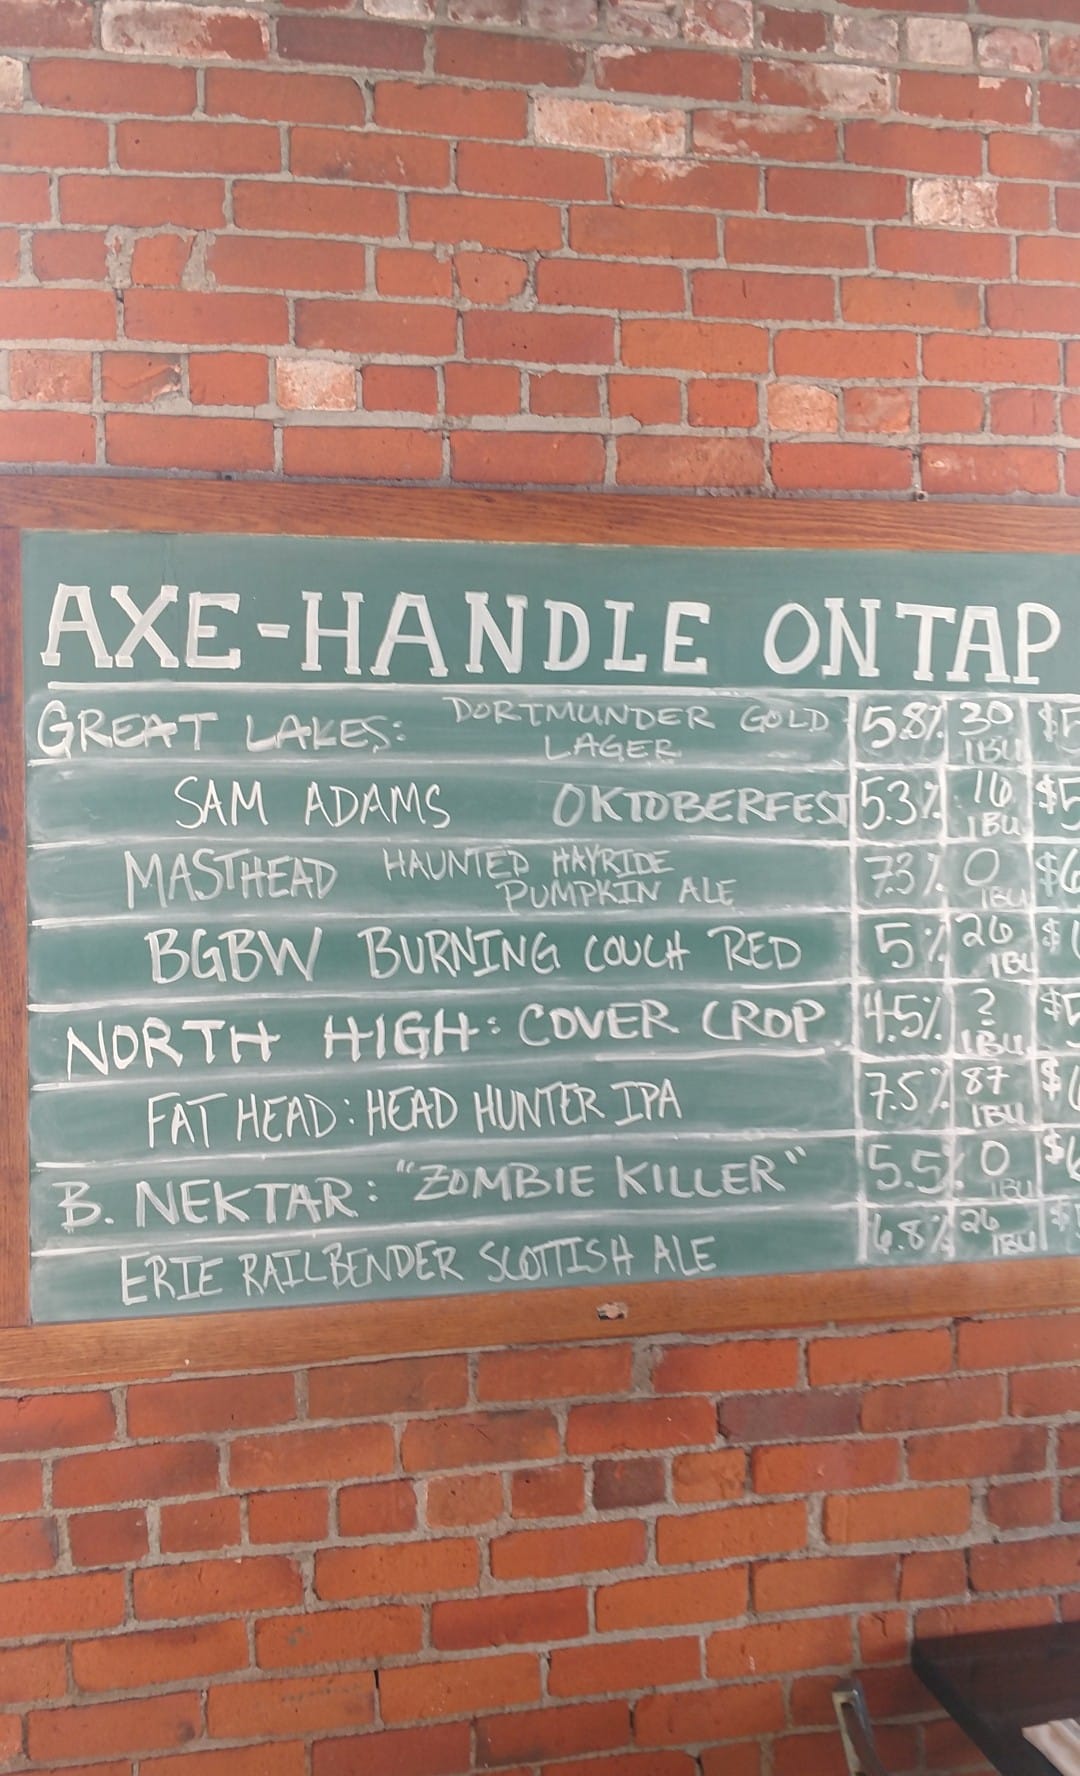 AXE-HANDLE ON TAP
GREAT LAKES: DORTMUNDER GOLD LAGER 5.8% 30 IBU $5
SAM ADAMS OKTOBERFEST 5.3% 16 IBU $5
MASTHEAD HAUNTED HAYRIDE PUMPKIN ALE 7.3% 0 IBU $6
BGBW BURNING COUCH RED 5% 26 IBU $
NORTH HIGH: COVER CROP 4.5% ? IBU $5
FAT HEAD: HEAD HUNTER IPA 7.5% 87 IBU $
B. NEKTAR: "ZOMBIE KILLER" 5.5% 0 IBU $6
ERIE RAILBENDER SCOTTISH ALE 6.8% 26 IBU $